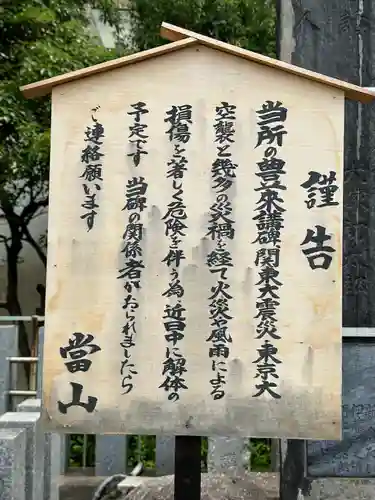 謹告
当所の豊川講碑関東大震災・東京大
空襲と幾多の災禍を経て火災や風雨による
損傷を著しく危険を伴う為近日中に解体の
予定です 当碑の関係者がおられましたら
ご連絡願います
當山